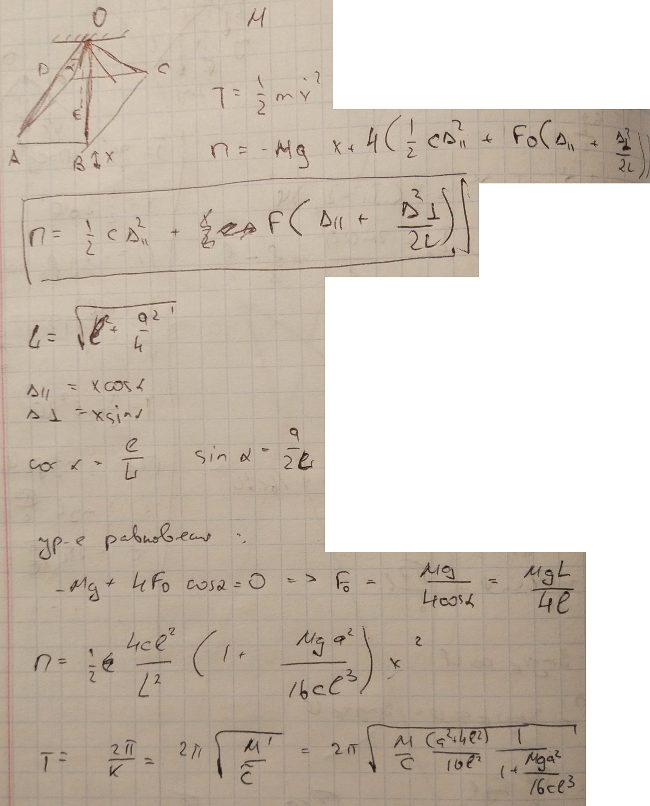 O
M
D
C
E
A
B
x
T = 1/2 m ẋ²
П = -Mg x + 4(1/2 cΔ||² + F₀(Δ|| + Δ⊥²/2L))
П = 1/2 c Δ||² + F(Δ|| + Δ²⊥/2L)
L = √(l² + a²/4)
Δ|| = x cosα
Δ⊥ = x sinα
cos α = l/L sin α = a/2L
ур-е равновесия :
-Mg + 4F₀ cosα = 0 => F₀ = Mg/4cosα = MgL/4l
П = 1/2 4cl²/L² (1 + Mga²/16cl³) x²
T = 2π/K = 2π √(M/c̃) = 2π √(M/c (a²+4l²)/16l² 1/(1+Mga²/16cl³))